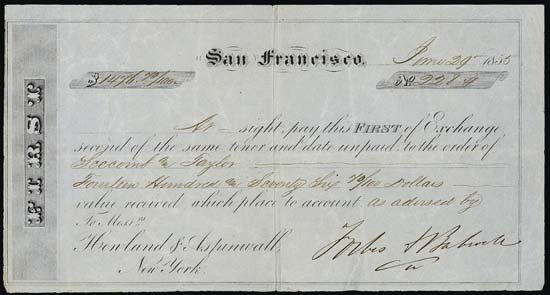 FIRST
San Francisco, June 29 1855
$1476.
No 2284
At sight, pay this FIRST of Exchange
second of the same tenor and date unpaid, to the order of
& Taylor
Fourteen Hundred & Seventy Six Dollars
value received, which place to account as advised by
To Messrs.
Howland & Aspinwall,
New York.
Forbes & Babcock